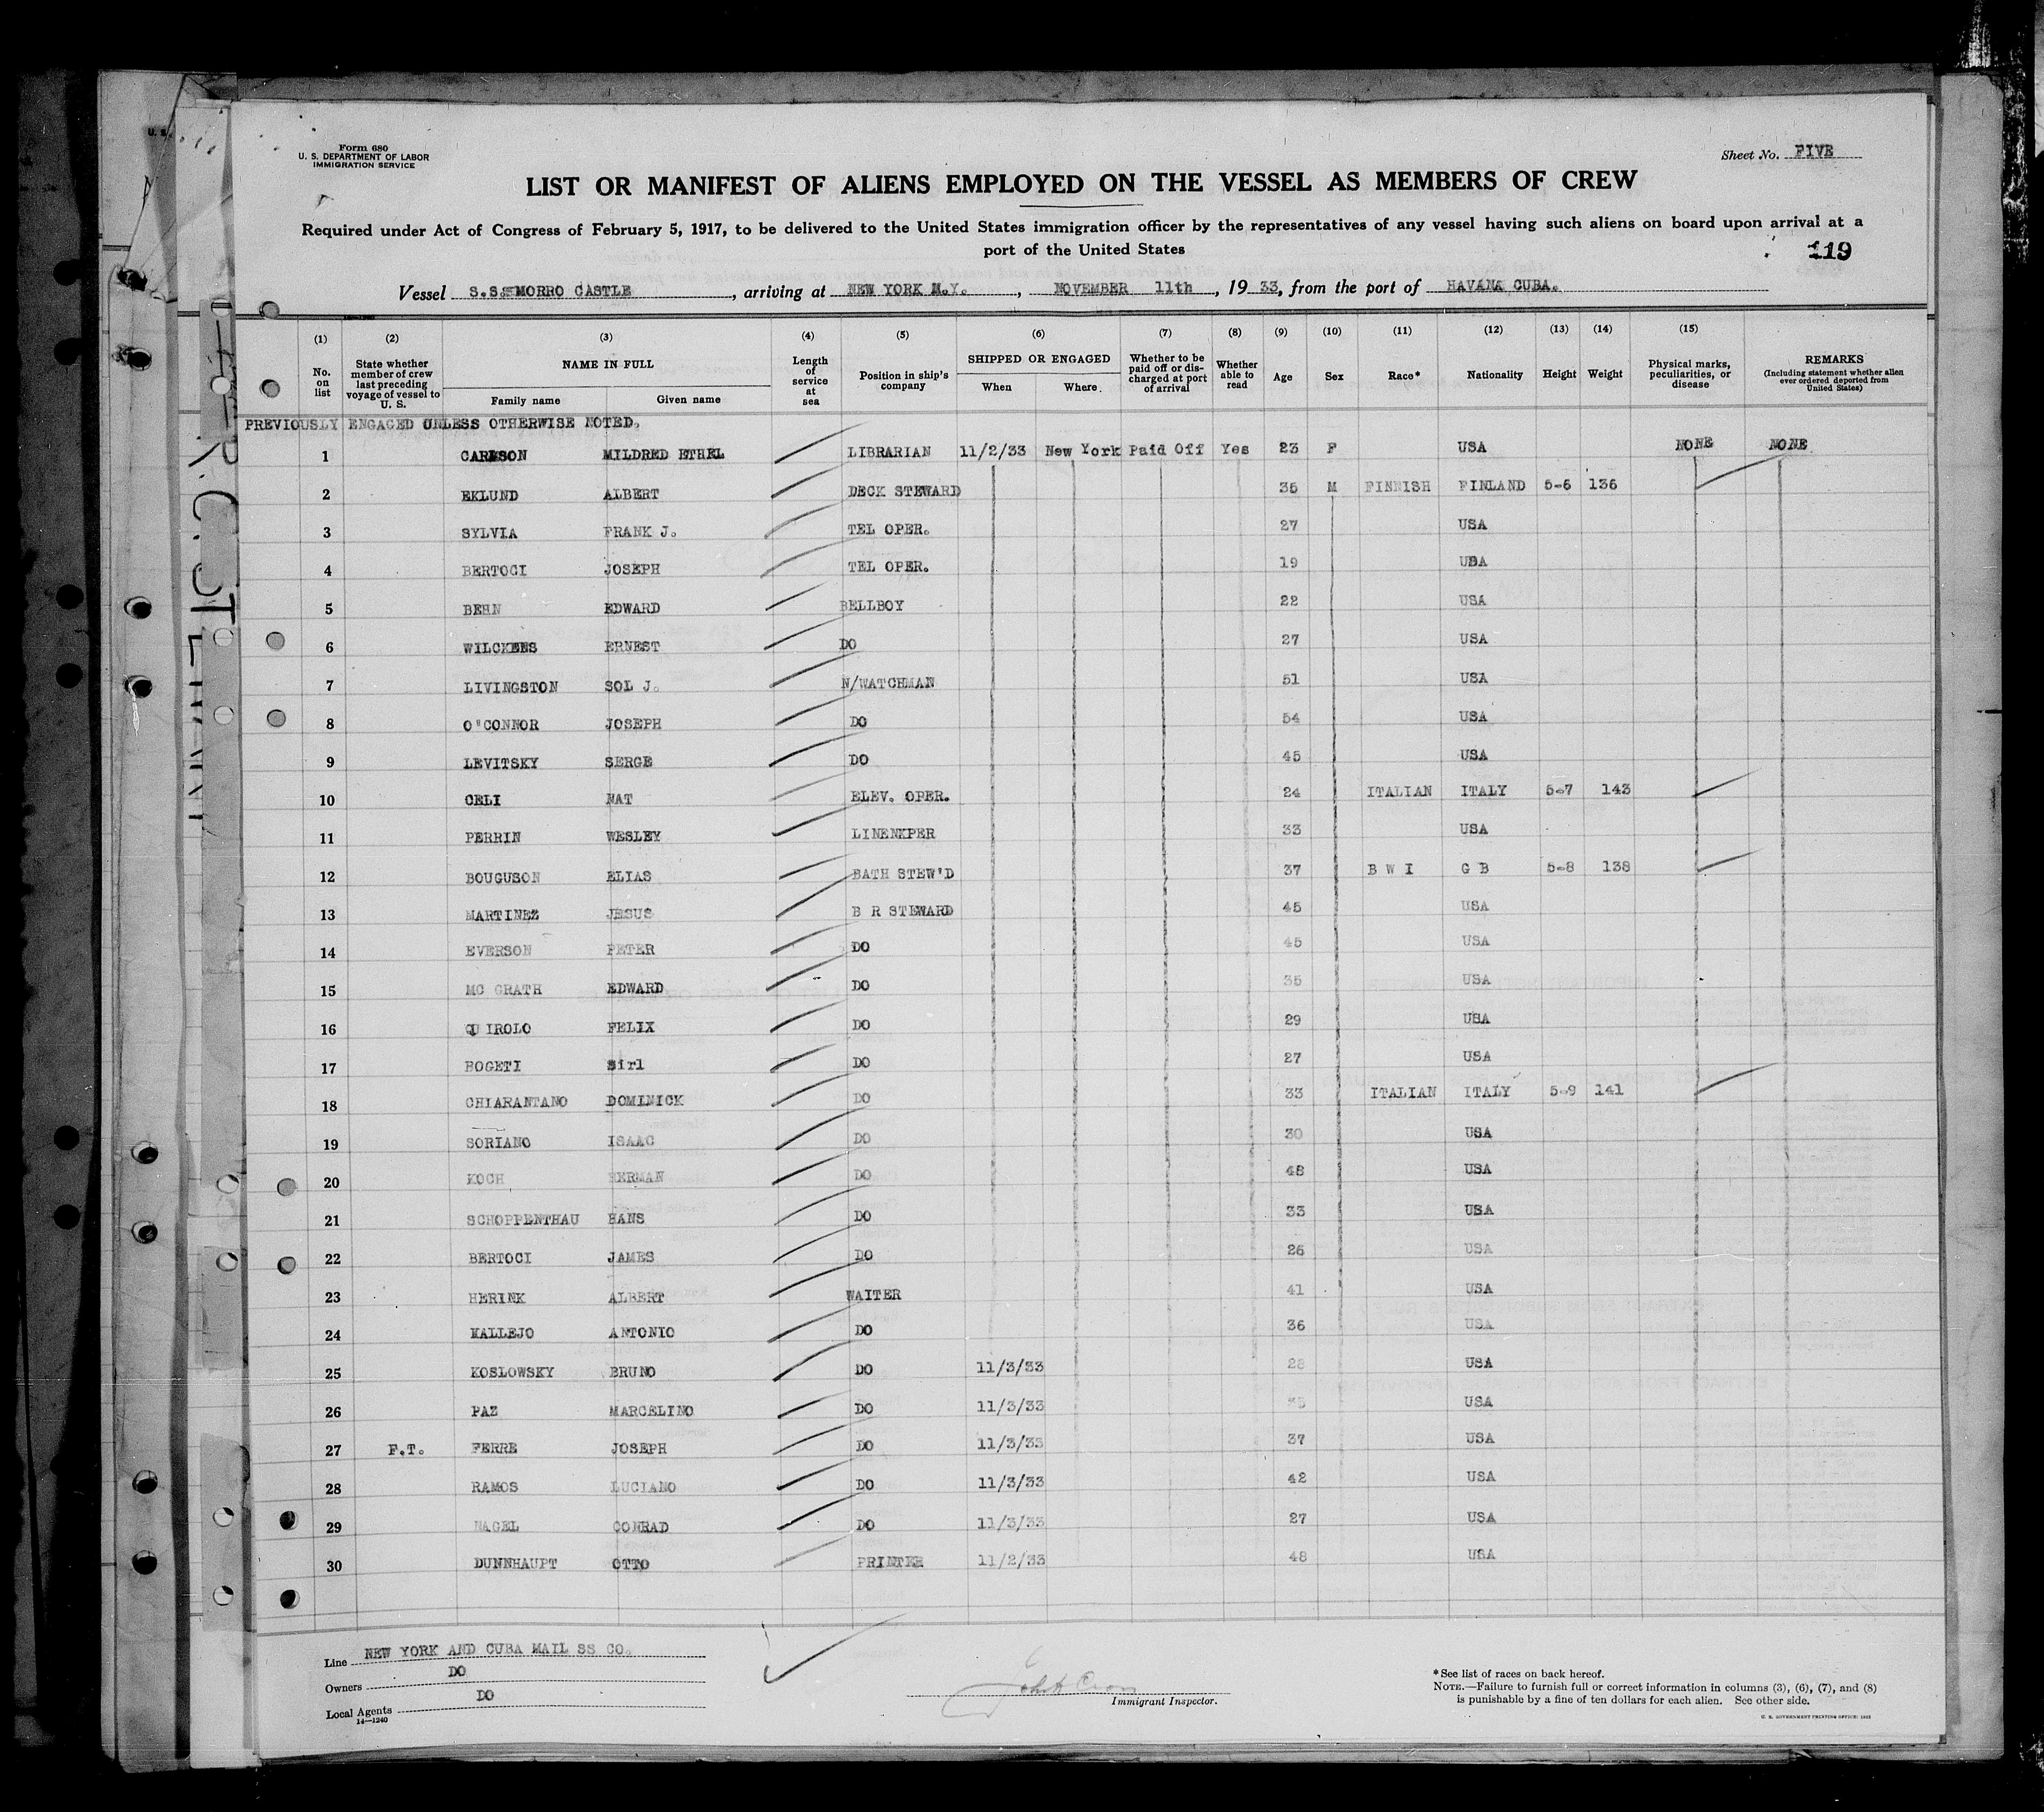 Form 680
U. S. DEPARTMENT OF LABOR
IMMIGRATION SERVICE
Sheet No. FIVE
LIST OR MANIFEST OF ALIENS EMPLOYED ON THE VESSEL AS MEMBERS OF CREW
Required under Act of Congress of February 5, 1917, to be delivered to the United States immigration officer by the representatives of any vessel having such aliens on board upon arrival at a
port of the United States
119
Vessel S.S. MORRO CASTLE, arriving at NEW YORK N.Y., NOVEMBER 11th, 1933, from the port of HAVANA CUBA.
(1) (2) (3) (4) (5) (6) (7) (8) (9) (10) (11) (12) (13) (14) (15)
No. on list State whether member of crew last preceding voyage of vessel to U. S. NAME IN FULL Family name Given name Length of service at sea Position in ship's company SHIPPED OR ENGAGED When Where. Whether to be paid off or discharged at port of arrival Whether able to read Age Sex Race* Nationality Height Weight Physical marks, peculiarities, or disease REMARKS (Including statement whether alien ever ordered deported from United States)
PREVIOUSLY ENGAGED UNLESS OTHERWISE NOTED.
1 CARLSON MILDRED ETHEL LIBRARIAN 11/2/33 New York Paid Off Yes 23 F USA NONE NONE
2 EKLUND ALBERT DECK STEWARD 35 M FINNISH FINLAND 5-6 136
3 SYLVIA FRANK J. TEL OPER. 27 USA
4 BERTOCI JOSEPH TEL OPER. 19 USA
5 BEHN EDWARD BELLBOY 22 USA
6 WILCKENS ERNEST DO 27 USA
7 LIVINGSTON SOL J. N/WATCHMAN 51 USA
8 O"CONNOR JOSEPH DO 54 USA
9 LEVITSKY SERGE DO 45 USA
10 CELI NAT ELEV. OPER. 24 ITALIAN ITALY 5-7 143
11 PERRIN WESLEY LINENKPER 33 USA
12 BOUGUSON ELIAS BATH STEW'D 37 B W I G B 5-8 138
13 MARTINEZ JESUS B R STEWARD 45 USA
14 EVERSON PETER DO 45 USA
15 MC GRATH EDWARD DO 35 USA
16 QUIROLO FELIX DO 29 USA
17 BOGETI Sirl DO 27 USA
18 CHIARANTANO DOMINICK DO 33 ITALIAN ITALY 5-9 141
19 SORIANO ISAAC DO 30 USA
20 KOCH HERMAN DO 48 USA
21 SCHOPPENTHAU HANS DO 33 USA
22 BERTOCI JAMES DO 26 USA
23 HERINK ALBERT WAITER 41 USA
24 KALLEJO ANTONIO DO 36 USA
25 KOSLOWSKY BRUNO DO 11/3/33 28 USA
26 PAZ MARCELINO DO 11/3/33 35 USA
27 F.T. FERRE JOSEPH DO 11/3/33 37 USA
28 RAMOS LUCIANO DO 11/3/33 42 USA
29 NAGEL CONRAD DO 11/3/33 27 USA
30 DUNNHAUPT OTTO PRINTER 11/2/33 48 USA
Line NEW YORK AND CUBA MAIL SS CO.
Owners DO
Local Agents DO
14—1240
Immigrant Inspector.
*See list of races on back hereof.
NOTE.—Failure to furnish full or correct information in columns (3), (6), (7), and (8)
is punishable by a fine of ten dollars for each alien. See other side.
U. S. GOVERNMENT PRINTING OFFICE: 1932